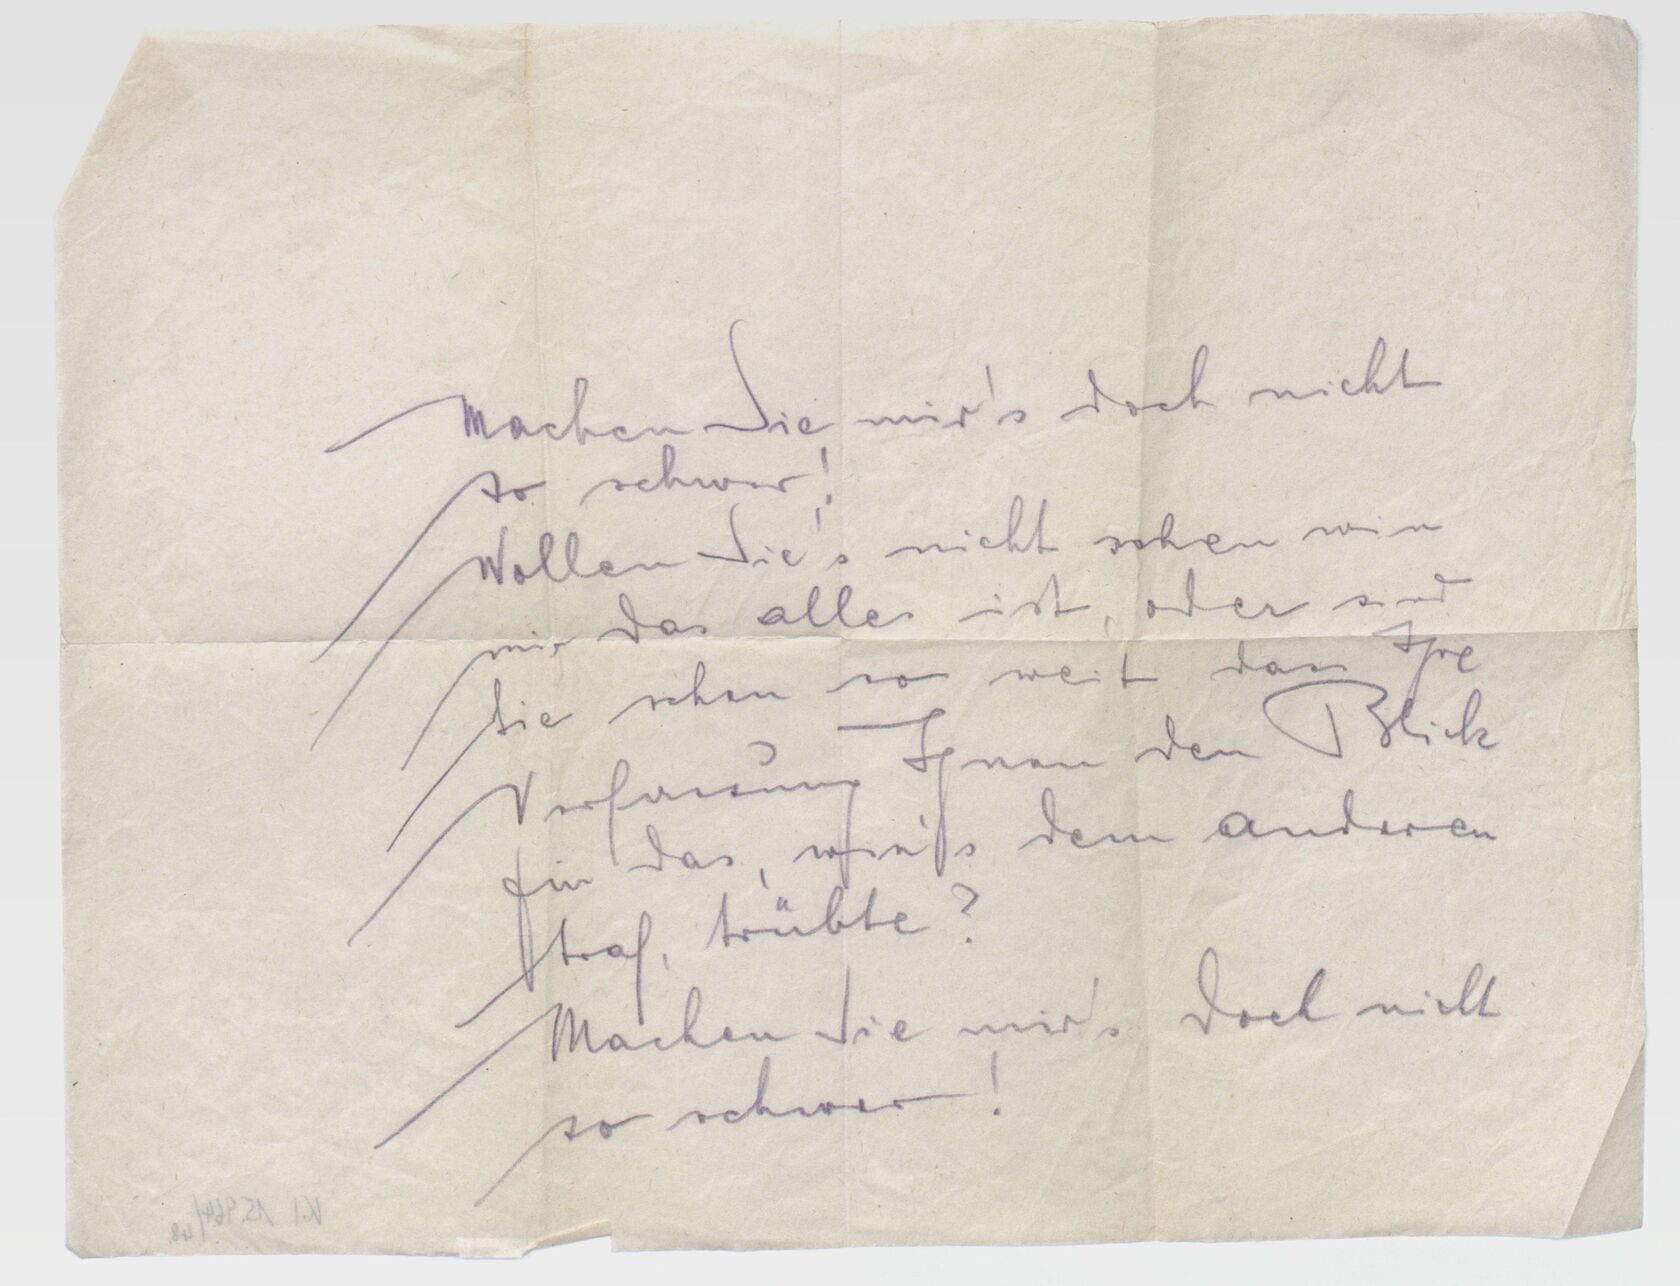 Machen Sie mir's doch nicht
so schwer!
Wollen Sie's nicht sehen wie
mir das alles ist, oder sind
Sie schon so weit dass Ihre
Verfassung Ihnen den Blick
für das, wie's dem anderen
traf, trübte?
Machen Sie mir's doch nicht
so schwer!